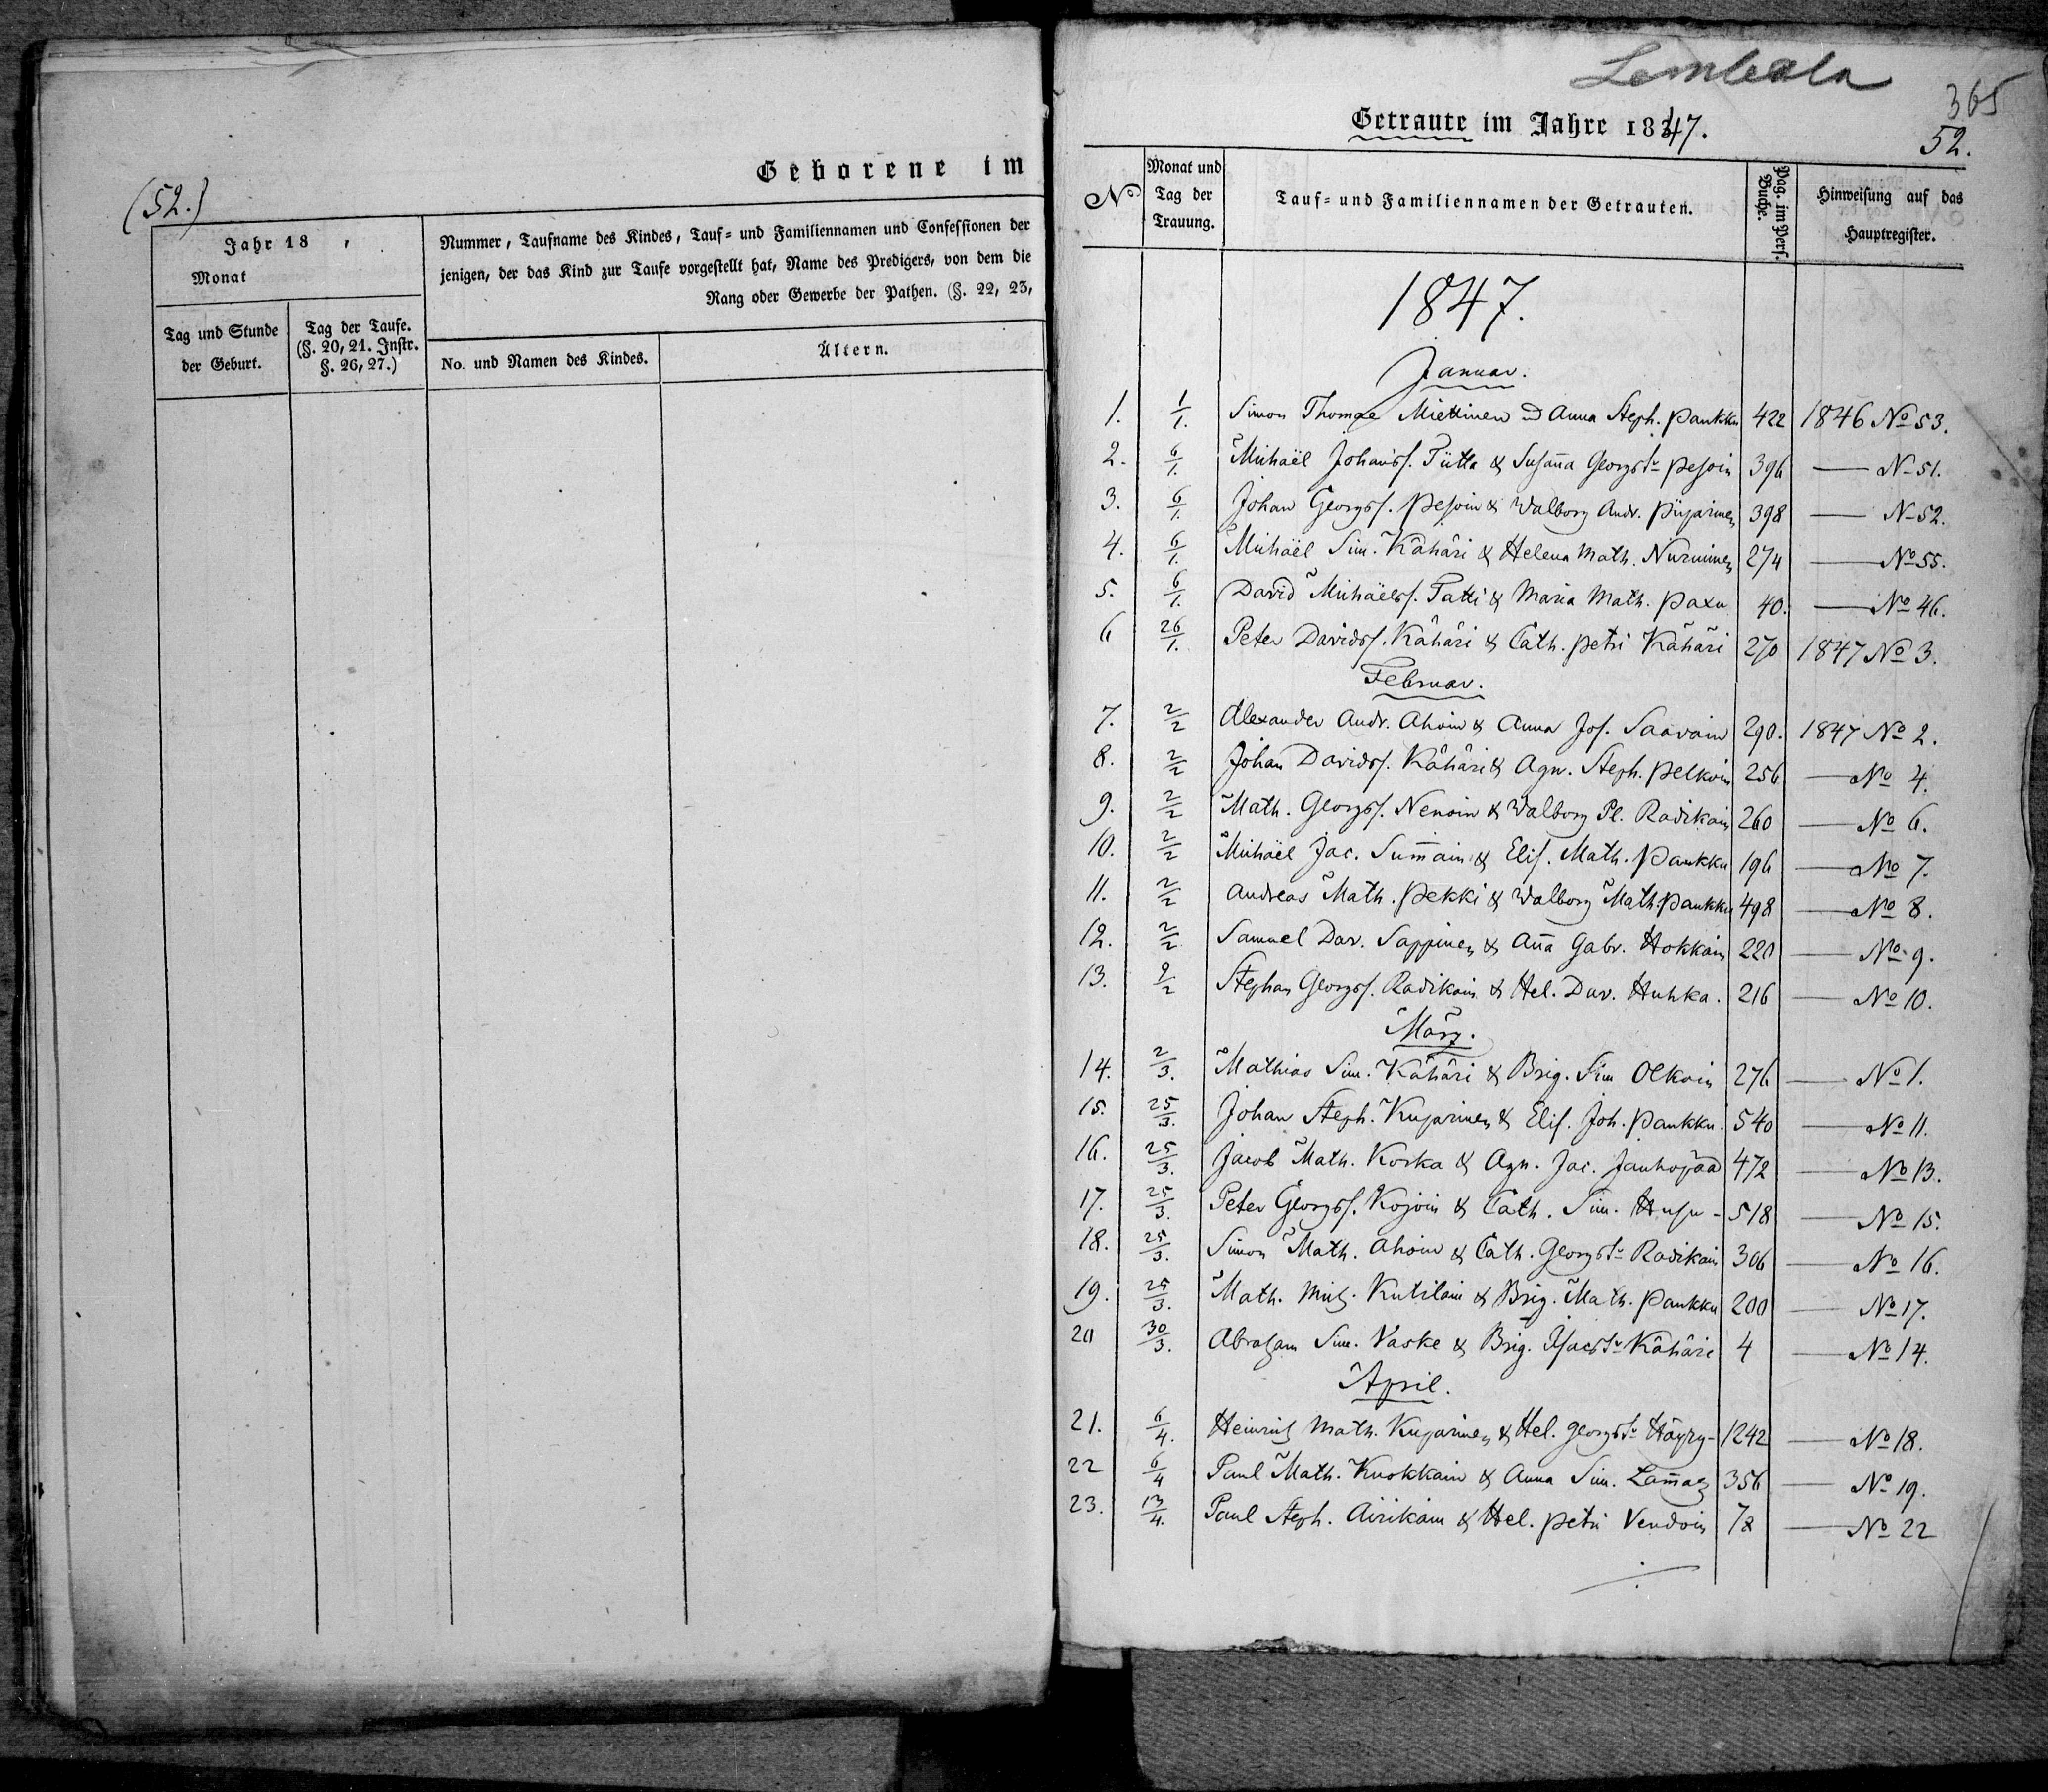 (52.)
Geborene im
Jahr 18 ,
Monat
Tag und Stunde
der Geburt.
Tag der Taufe.
(§. 20, 21. Instr.
§. 26, 27.)
Nummer, Taufname des Kindes, Tauf- und Familiennamen und Confessionen der
jenigen, der das Kind zur Taufe vorgestellt hat, Name des Predigers, von dem die
Rang oder Gewerbe der Pathen. (§. 22, 23,
No. und Namen des Kindes.
Ältern.
Lembala
365
Getraute im Jahre 1847.
52.
No
Monat und
Tag der
Trauung.
Tauf- und Familiennamen der Getrauten.
Pag. im Pers.
Buche.
Hinweisung auf das
Hauptregister.
1847.
Januar.
1. 1/1. Simon Thomae Miettinen & Anna Steph. Paukku 422 1846 No 53.
2. 6/1. Michaël Johanss. Tütta & Susaña Georgstr Pesoin 396 — No 51.
3. 6/1. Johan Georgss. Pesoin & Walborg Andr. Piiparinen 398 — No 52.
4. 6/1. Michaël Sim. Kähäri & Helena Math. Nurminen 274 — No 55.
5. 6/1. David Michaelss. Tatti & Maria Math. Paxu 40. — No 46.
6 26/1. Peter Davidss. Kähäri & Cath. Petri Kähäri 270 1847 No 3.
Februar.
7. 2/2 Alexander Andr. Ahoin & Anna Jos. Saavain 290. 1847 No 2.
8. 2/2 Johan Davidss. Kähäri & Agn. Steph. Pelkoin 256 — No 4.
9. 2/2 Math. Georgss. Nenoin & Walborg Pl. Radikain 260 — No 6.
10. 2/2 Michaël Jac. Sum̄ain & Elis. Math. Paukku 196 — No 7.
11. 2/2 Andreas Math. Pekki & Walborg Math. Paukku 498 — No 8.
12. 2/2 Samuel Dav. Sappinen & Aña Gabr. Hokkain 220 — No 9.
13. 9/2 Stephan Georgss. Radikain & Hel. Dav. Huhka. 216 — No 10.
März.
14. 2/3. Mathias Sim. Kähäri & Brig. Sim Olkoin 276 — No 1.
15. 25/3. Johan Steph. Kuparinen & Elis. Joh. Paukku. 540 — No 11.
16. 25/3. Jacob Math. Koska & Agn. Jac. Jauhopää 472 — No 13.
17. 25/3. Peter Georgss. Kojoin & Cath. Sim. Husu - 518 — No 15.
18. 25/3. Simon Math. Ahoin & Cath. Georgstr Radikain 306 — No 16.
19. 25/3. Math. Mich. Kutilain & Brig. Math. Paukku 200 — No 17.
20 30/3. Abraham Sim. Vaske & Brig. Isacstr Kähäri 4 — No 14.
April.
21. 6/4. Heinrich Math. Kuparinen & Hel. Georgstr Häyry- 1242 — No 18.
22 6/4 Paul Math. Kuokkain & Anna Sim. 356 — No 19.
23. 13/4. Paul Steph. Airikain & Hel. Petri Vendoin 78 — No 22